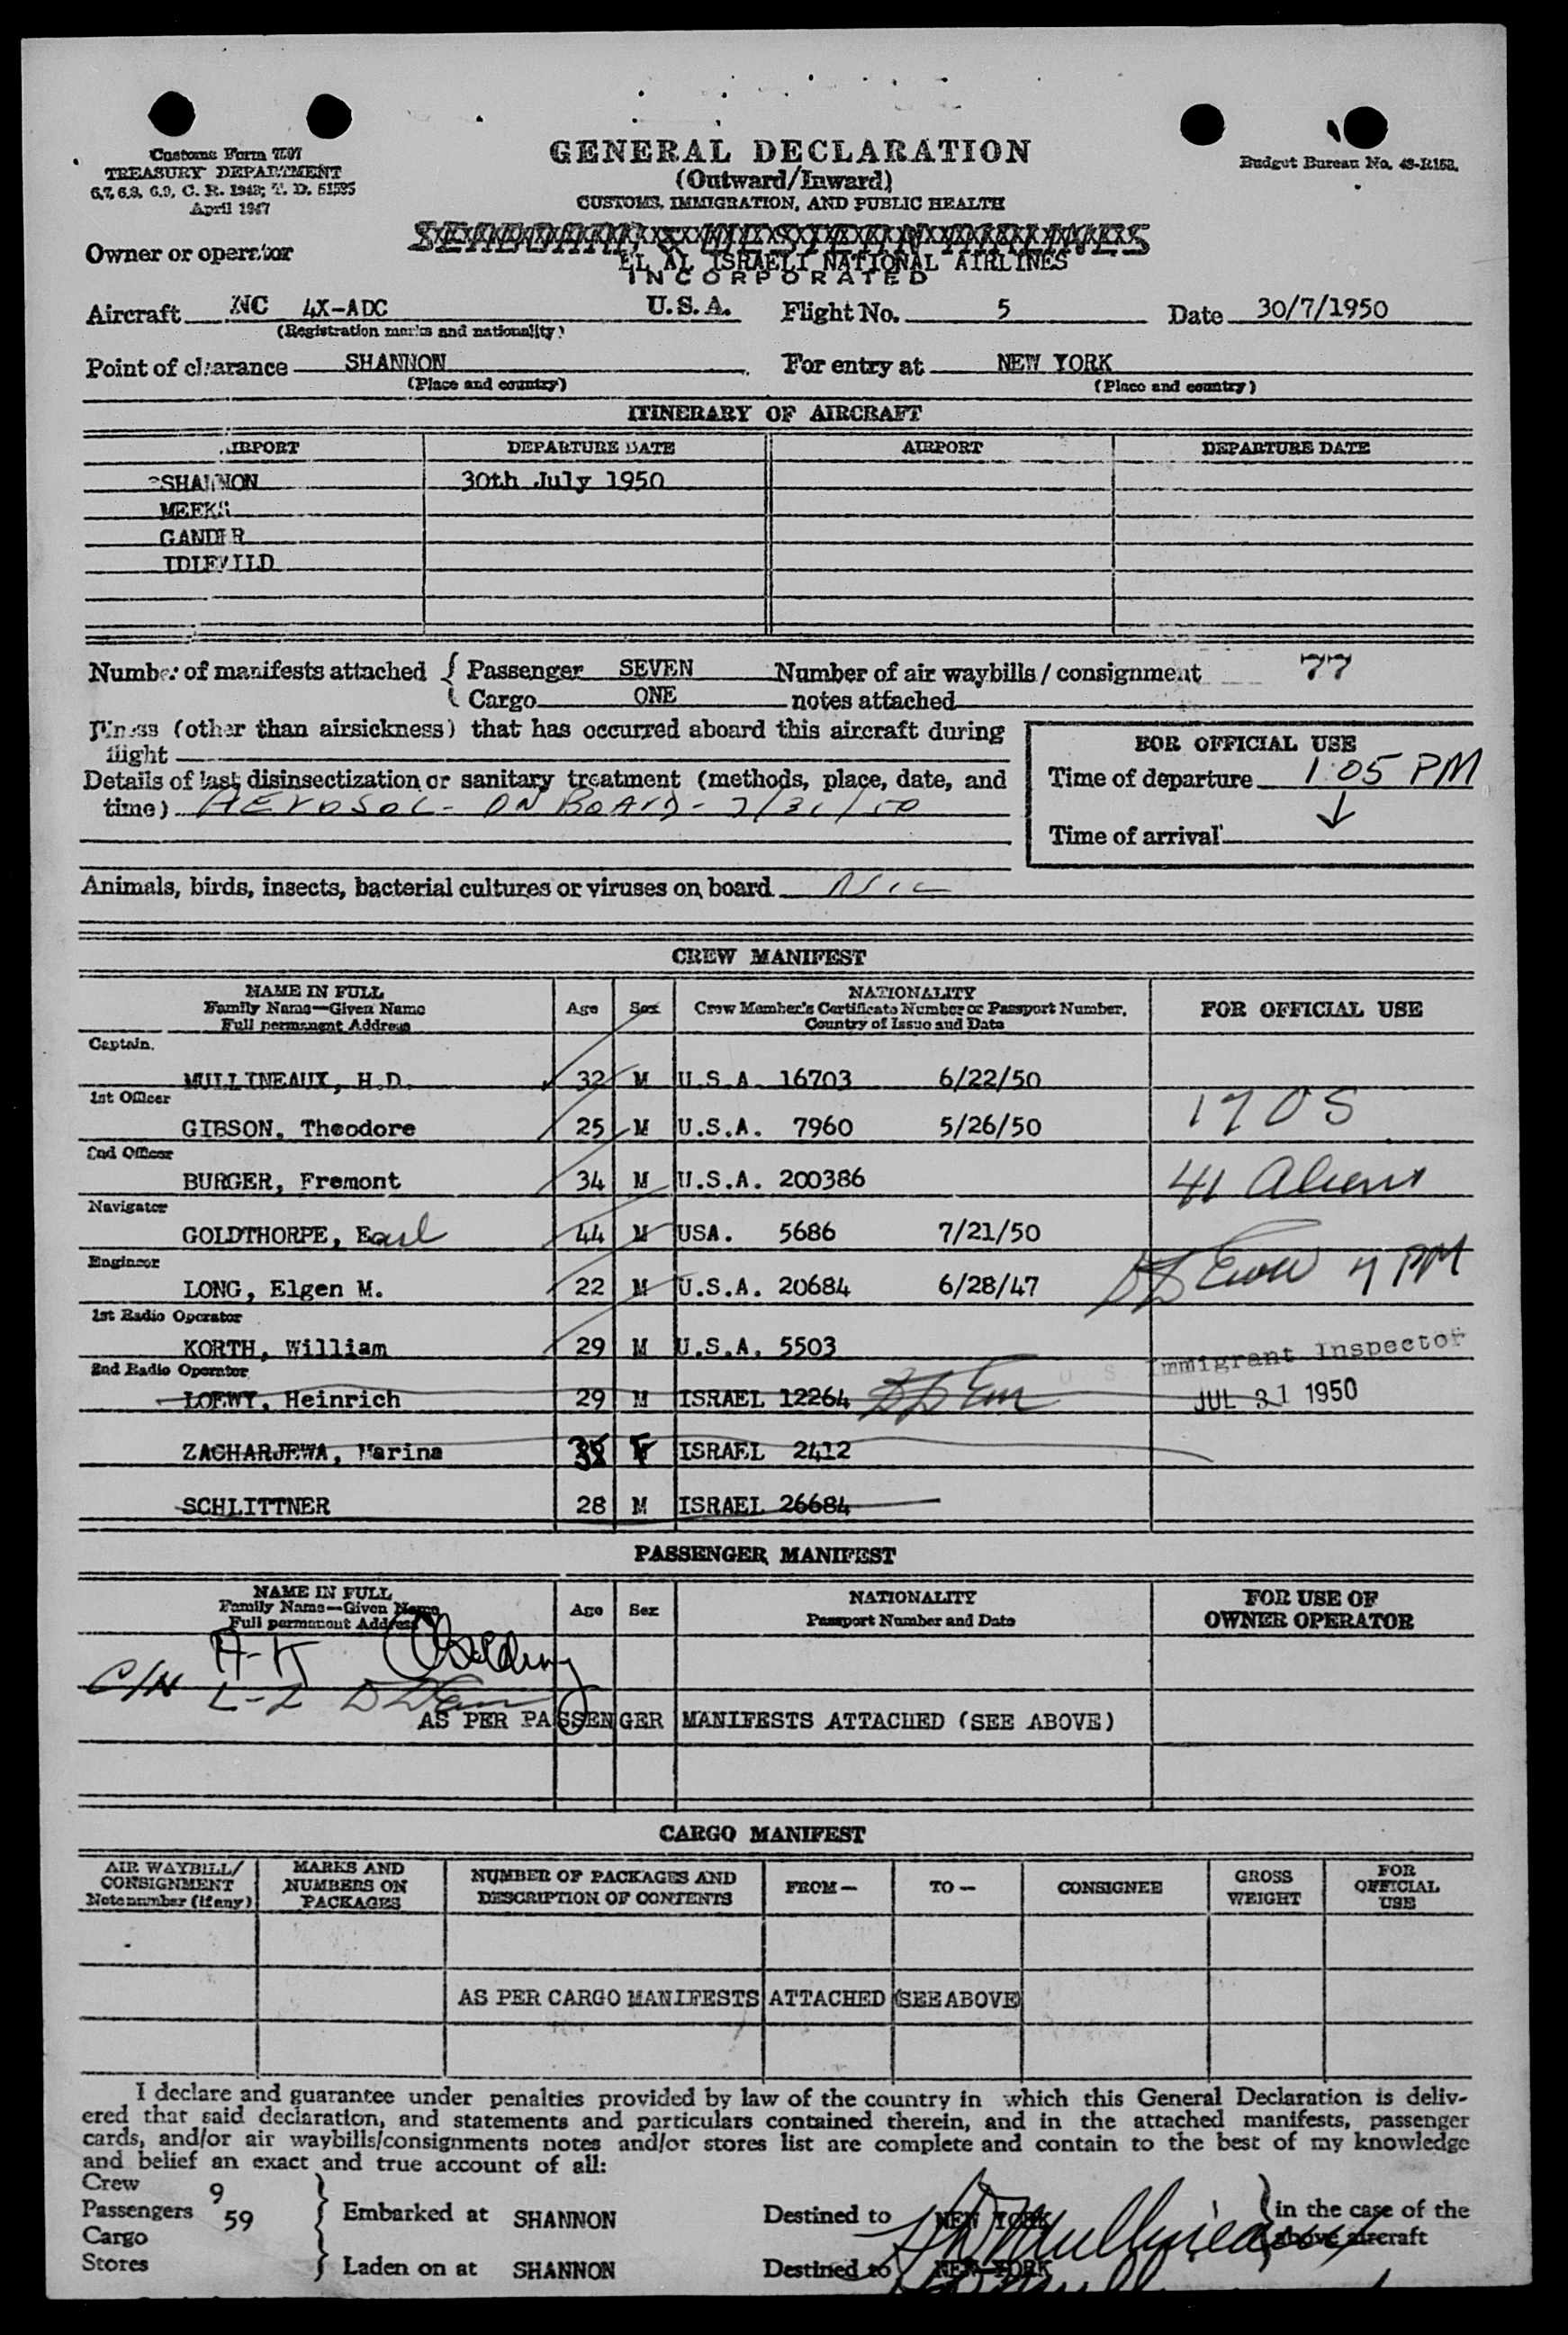 Customs Form 7507
TREASURY DEPARTMENT
6.7, 6.8, 6.9, C. R. 1943; T. D. 51595
April 1947
GENERAL DECLARATION
(Outward/Inward)
CUSTOMS, IMMIGRATION, AND PUBLIC HEALTH
Budget Bureau No. 48-R152.
Owner or operator
SEABOARD & WESTERN AIRLINES
EL AL ISRAELI NATIONAL AIRLINES
INCORPORATED
Aircraft NC 4X-ADC U.S.A. Flight No. 5 Date 30/7/1950
(Registration marks and nationality)
Point of clearance SHANNON For entry at NEW YORK
(Place and country) (Place and country)
ITINERARY OF AIRCRAFT
AIRPORT DEPARTURE DATE AIRPORT DEPARTURE DATE
SHANNON 30th July 1950
MEEKS
GANDER
IDLEWILD
Number of manifests attached { Passenger SEVEN Number of air waybills / consignment 77
Cargo ONE notes attached
Illness (other than airsickness) that has occurred aboard this aircraft during
flight
FOR OFFICIAL USE
Details of last disinsectization or sanitary treatment (methods, place, date, and
time) AEROSOL - ON BOARD - 7/31/50
Time of departure 1:05 PM
Time of arrival
Animals, birds, insects, bacterial cultures or viruses on board NIL
CREW MANIFEST
NAME IN FULL
Family Name—Given Name
Full permanent Address
Age Sex
NATIONALITY
Crew Member's Certificate Number or Passport Number,
Country of Issue and Date
FOR OFFICIAL USE
Captain.
MULLINEAUX, H.D. 32 M U.S.A. 16703 6/22/50
1st Officer
GIBSON, Theodore 25 M U.S.A. 7960 5/26/50
1705
2nd Officer
BURGER, Fremont 34 M U.S.A. 200386
41 Aliens
Navigator
GOLDTHORPE, Earl 44 M USA. 5686 7/21/50
Engineer
LONG, Elgen M. 22 M U.S.A. 20684 6/28/47
7 PM
1st Radio Operator
KORTH, William 29 M U.S.A. 5503
U S Immigrant Inspector
2nd Radio Operator
LOEWY, Heinrich 29 M ISRAEL 12264
JUL 31 1950
ZACHARJEWA, Marina 38 F ISRAEL 2412
SCHLITTNER 28 M ISRAEL 26684
PASSENGER MANIFEST
NAME IN FULL
Family Name—Given Name
Full permanent Address
Age Sex
NATIONALITY
Passport Number and Date
FOR USE OF
OWNER OPERATOR
A-K
C/N L-Z
AS PER PASSENGER MANIFESTS ATTACHED (SEE ABOVE)
CARGO MANIFEST
AIR WAYBILL/
CONSIGNMENT
Note number (if any)
MARKS AND
NUMBERS ON
PACKAGES
NUMBER OF PACKAGES AND
DESCRIPTION OF CONTENTS
FROM—
TO—
CONSIGNEE
GROSS
WEIGHT
FOR
OFFICIAL
USE
AS PER CARGO MANIFESTS ATTACHED (SEE ABOVE)
I declare and guarantee under penalties provided by law of the country in which this General Declaration is deliv-
ered that said declaration, and statements and particulars contained therein, and in the attached manifests, passenger
cards, and/or air waybills/consignments notes and/or stores list are complete and contain to the best of my knowledge
and belief an exact and true account of all:
Crew 9
Passengers 59
Cargo
Stores
Embarked at SHANNON Destined to NEW YORK
Laden on at SHANNON Destined to NEW YORK
in the case of the
above aircraft
HD Mullineaux